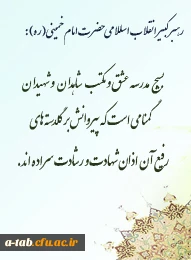 رهبر کبیر انقلاب اسلامی حضرت امام خمینی (ره) :
بسیج مدرسه عشق و مکتب شاهدان و شهیدان
گمنامی است که پیروانش بر گلدسته های
رفیع آن اذان شهادت و رشادت سر داده اند.
a-tab.cfu.ac.ir